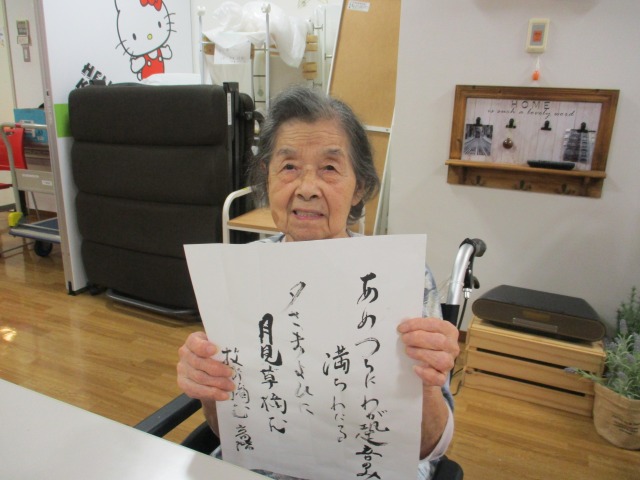 あめつちに わが跫音の
満ちわたる
夕さまよひに
月見草摘む
HOME
is such a lovely word